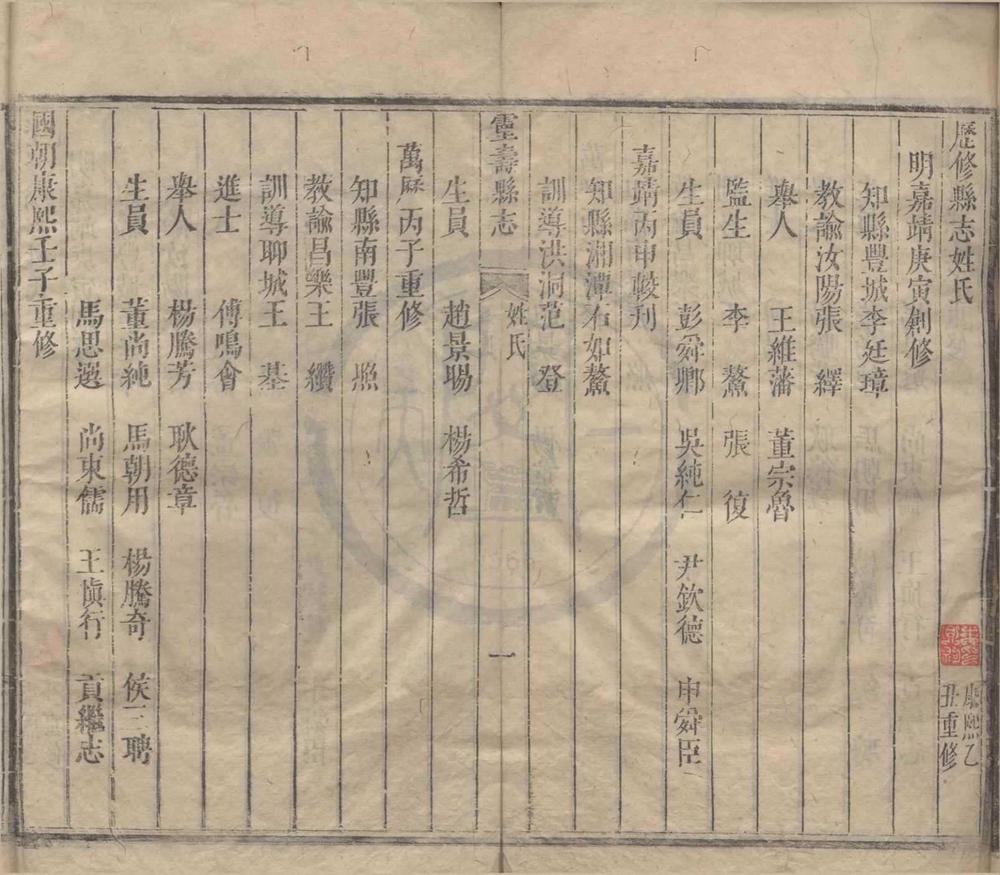 歷修縣志姓氏
康熙乙
丑重修
明嘉靖庚寅創修
知縣豐城李廷璋
教諭汝陽張 繹
舉人 王維藩 董宗魯
監生 李 鰲 張 復
生員 彭舜卿 吳純仁 尹欽德 申舜臣
嘉靖丙申較刋
知縣湘潭石如鰲
訓導洪洞范 登
靈壽縣志 姓氏 一
生員 趙景暘 楊希哲
萬曆丙子重修
知縣南豐張 照
教諭昌樂王 纘
訓導聊城王 基
進士 傅鳴會
舉人 楊騰芳 耿德章
生員 董尚純 馬朝用 楊騰奇 侯三聘
馬思選 尚東儒 王愼行 貢繼志
國朝康熙壬子重修